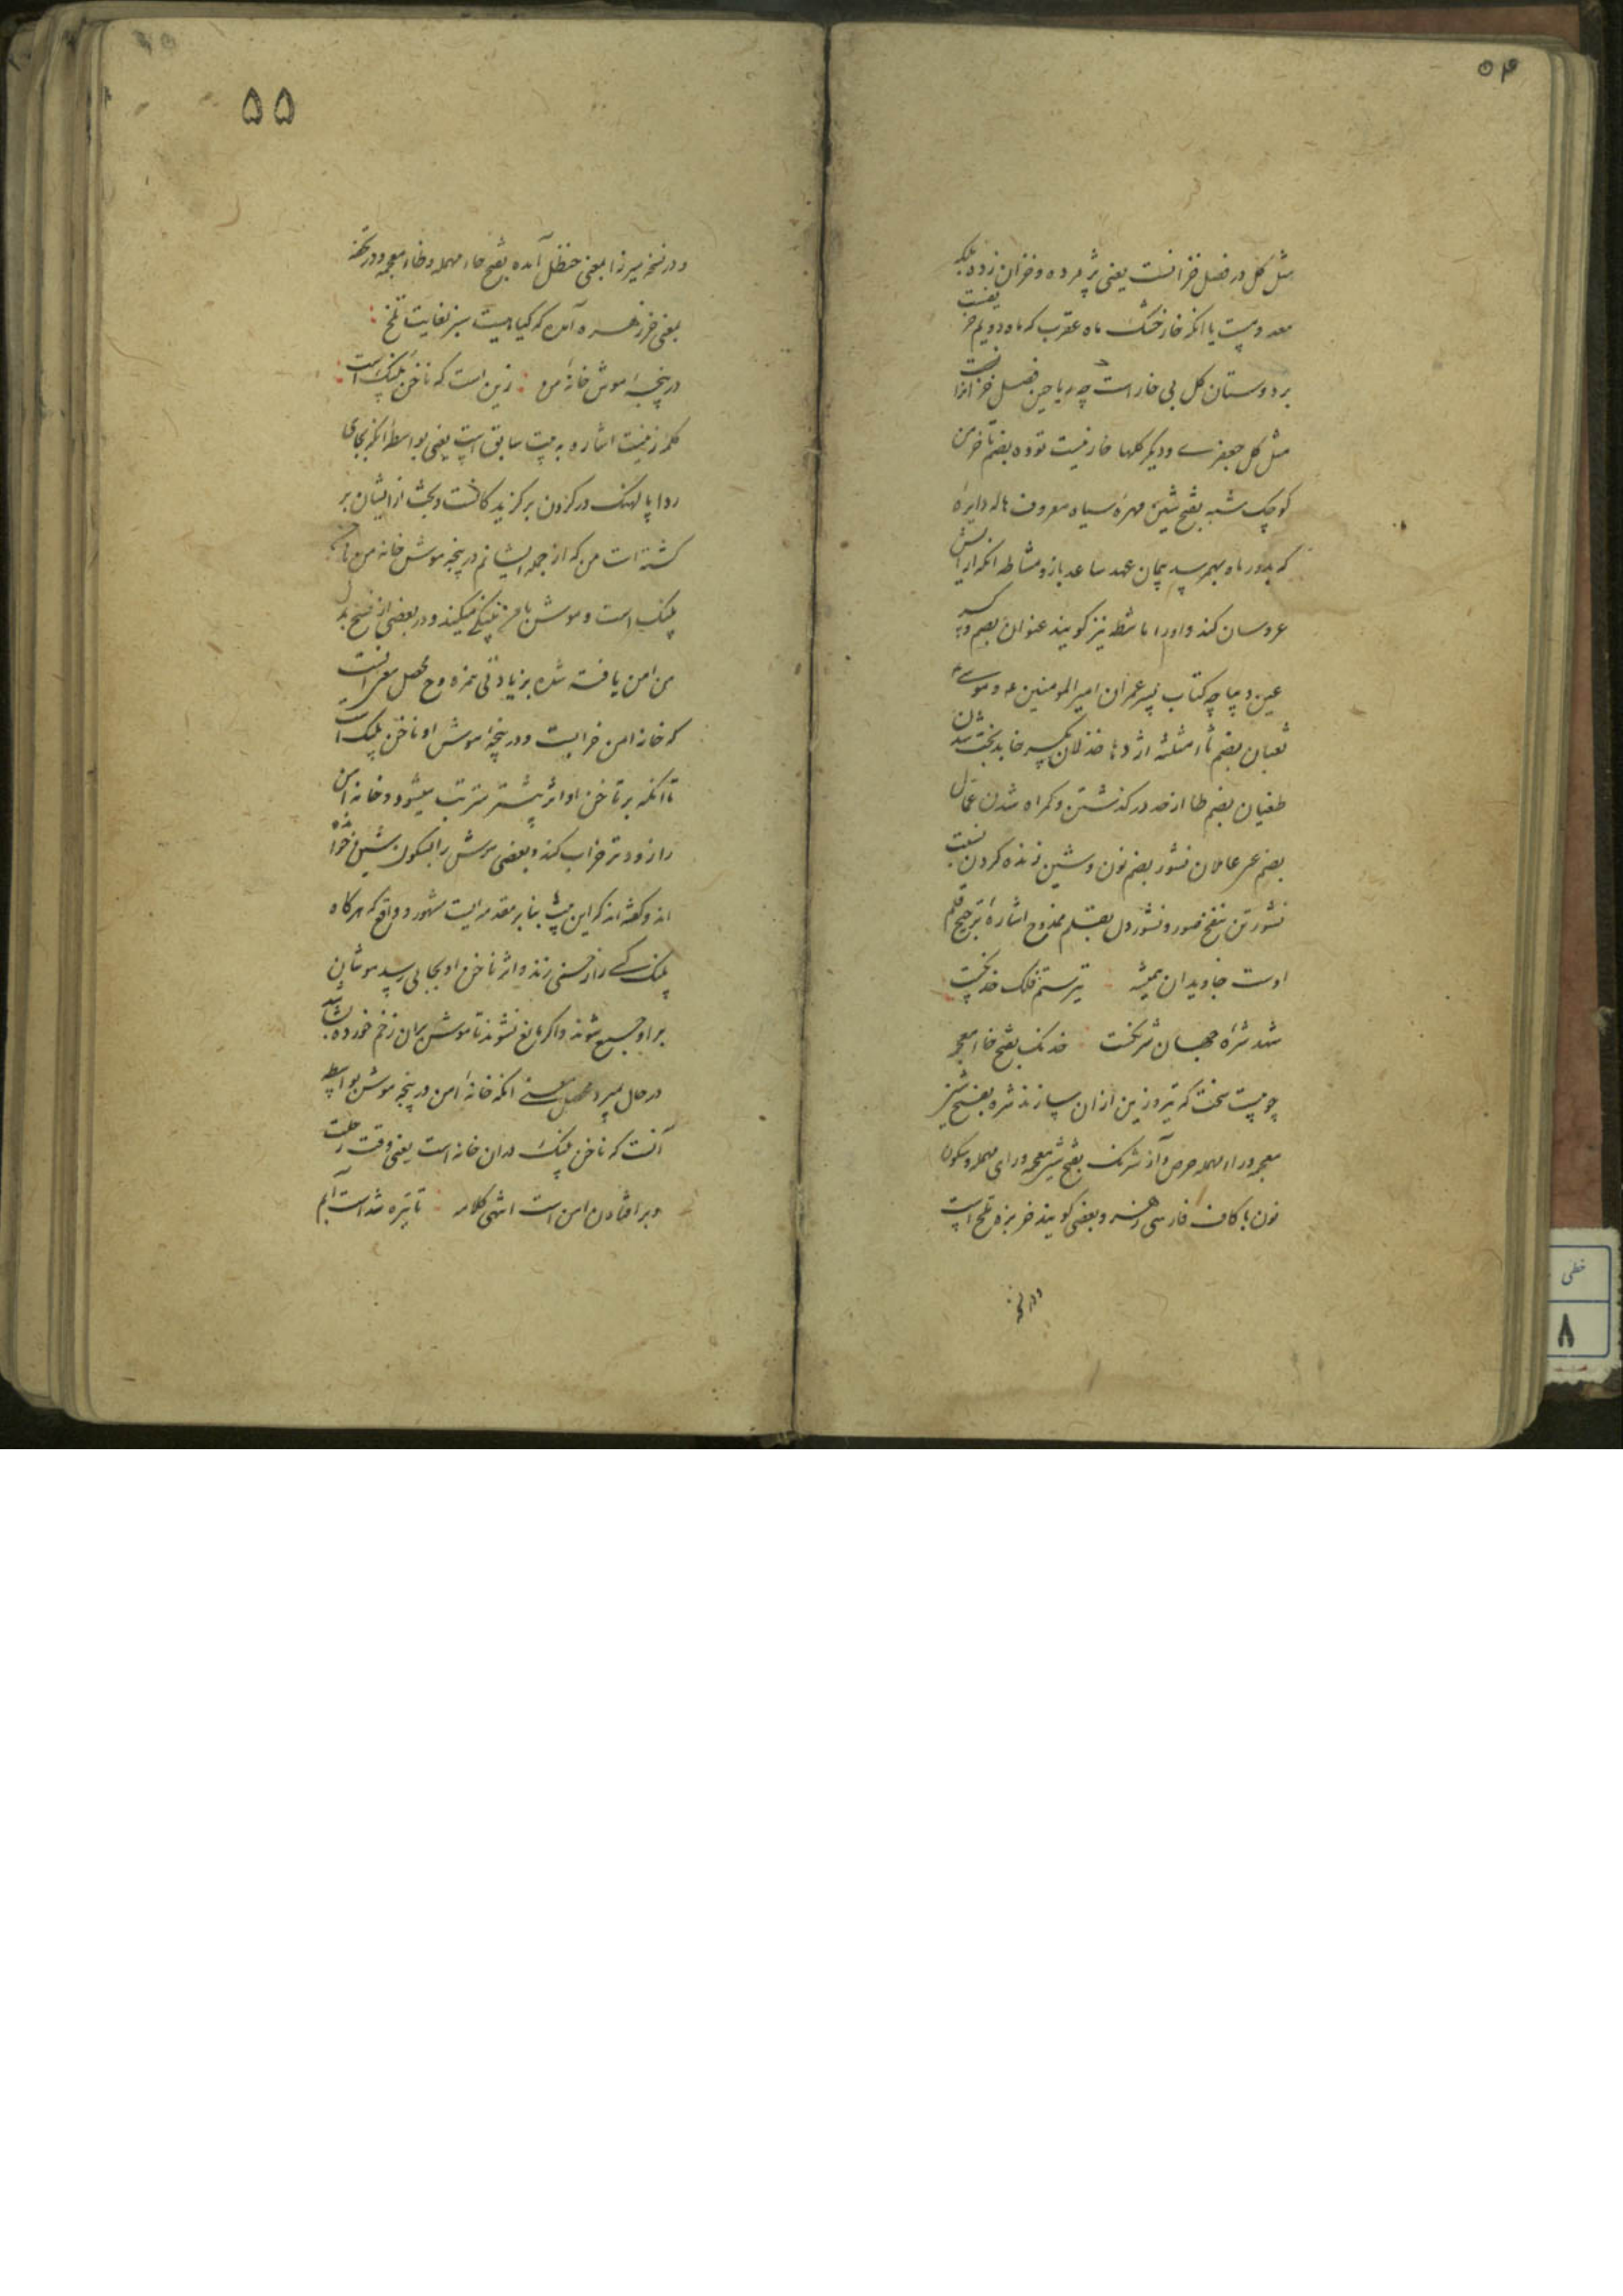 ۵۴
مثل گل در فصل خزانست یعنی پژمرده و خزان زده بلکه
معدومست یا انکه خار خشک ماه عقرب که ماه دویم خریفست
بر دوستان گل بی خار است چه ریاحین فصل خزانرا
مثل گل جعفری و دیگر گلها خار نیست توده بضم تا خرمن
کوچک شبه بفتح شین مهره سیاه معروف هاله دایره
که بدور ماه بهم رسد پیمان عهد ساعد بازو مشاطه انکه ارایش
عروسان کند و او را ماشطه نیز گویند عنوان بضم و کسر
عین دیباچه کتاب پسر عمران امیر المومنین ع و موسی ع
ثعبان بضم ثاء مثلثه اژدها خذلان بکسر خا بدبخت شدن
طغیان بضم طا از حد در گذشتن و گمراه شدن عمال
بضم عین عاملان نشور بضم نون و شین زنده کردن نسبت
نشور تن بنفخ صور و نشور دل بقلم ممدوح اشاره بترجیح قلم
اوست جاویدان همیشه تیر ستم فلک خدنگست
شهد شره جهان شرنگست خدنگ بفتح خاء معجمه
چوبیست سخت که تیر و زین ازان سازند شره بفتح شین
معجمه و راء مهمله حرص و آز شرنگ بفتح شین معجمه و رای مهمله و سکون
نون با کاف فارسی زهر و بعضی گویند خربزه تلخ است
و در نسخه
۵۵
و در نسخه میرزا بمعنی حنظل آمده بفتح حاء مهمله و ظاء معجمه و در تحفه
بمعنی خرزهره آمده که گیاهیست سبز بغایت تلخ
در پنجه موش خانه من زین است که ناخن پلنگ است
کلمه زینست اشاره به بیت سابق است یعنی بواسطه انکه بجای
ردا پالهنگ در گردن برگزیدگانست و بخت از ایشان بر
گشته است من که از جمله ایشانم در پنجه موش خانه من ناخن
پلنگ است و موش با من پلنگی میکند و در بعضی از نسخ بدل
من امن یافته شده بزیادتی همزه و ح محصل معنی انست
که خانه امن خرابست و در پنجه موش او ناخن پلنگ است
تا انکه بر ناخن او اثر بیشتر مترتب میشود و خانه امن
را زودتر خراب کند و بعضی موش را بسکون شین خوانده
اند و گفته اند که این بیت بنا بر مقدمه ایست مشهور و واقع که هرگاه
پلنگ کسی را زخمی زند و اثر ناخن او بجایی رسد موشان
بر او جمع شوند و اگر مانع نشوند تا موش بران زخم خورده بشاشد
در حال میرد محصل معنی انکه خانه امن در پنجه موش بواسطه
آنست که ناخن پلنگ دران خانه است یعنی وقت رحلت
و بر افتادن امن است انتهی کلامه تا تیره شد است آبم
خطی
۸